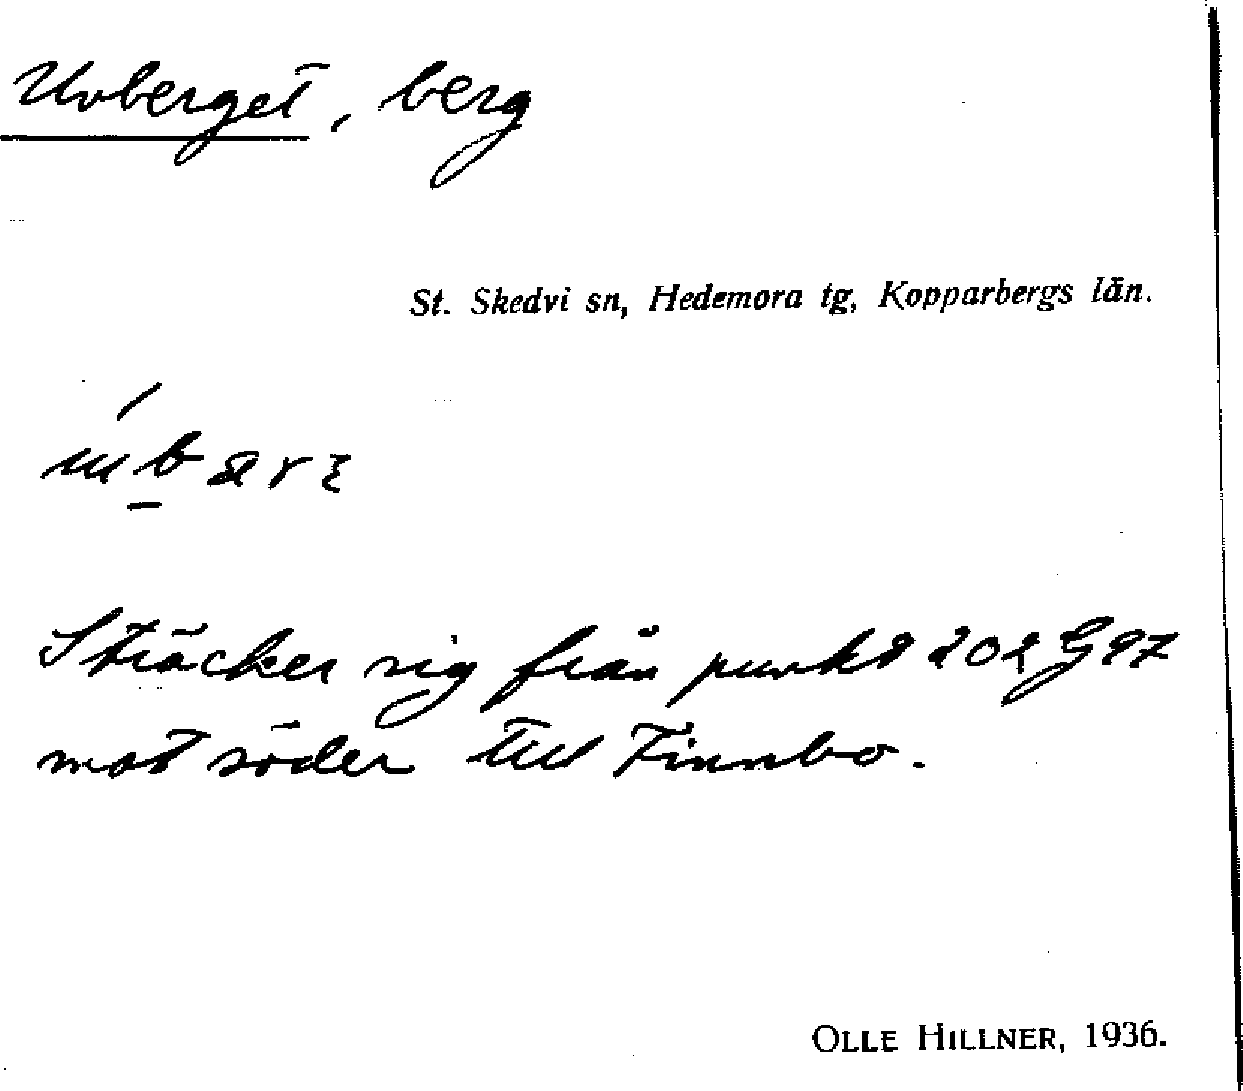 Uvberget, berg
St. Skedvi sn, Hedemora tg, Kopparbergs län.
Sträcker sig från punkt 202 G 97
mot söder till Finnbo.
OLLE HILLNER, 1936.